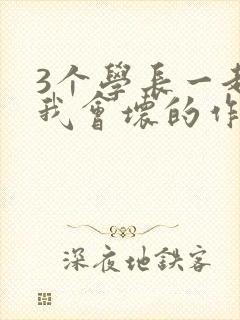 3个學長一老
我會壞的作
深夜地鉄客